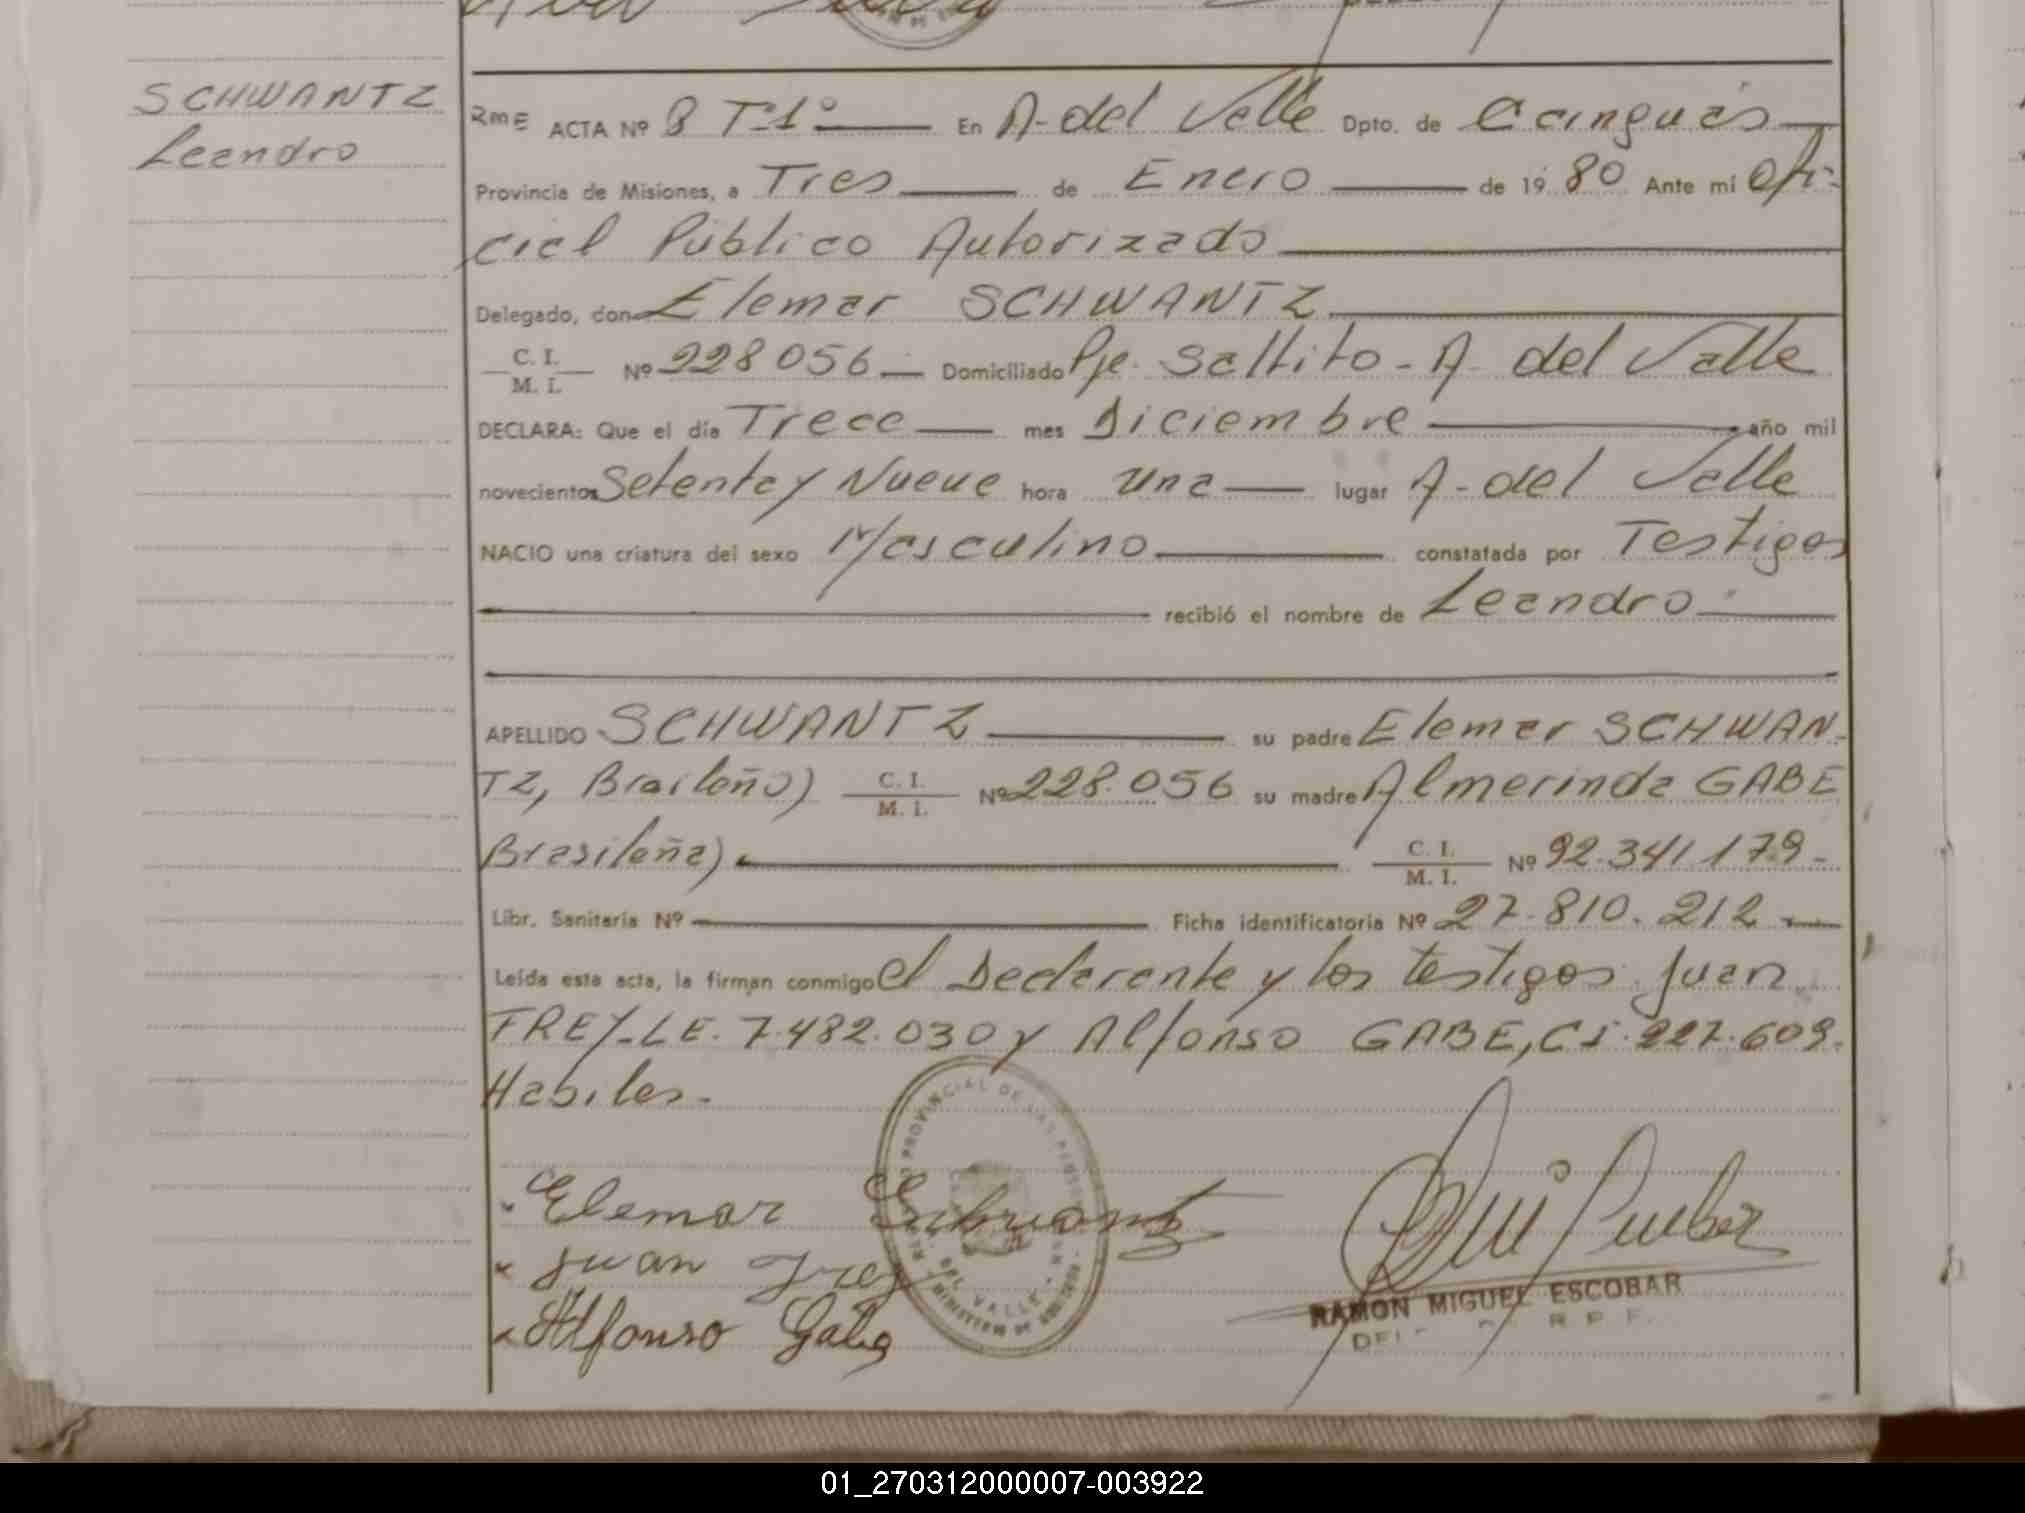 SCHWANTZ
Leandro
Rme ACTA Nº 8 Tº1º En A. del Valle Dpto. de Cainguás
Provincia de Misiones, a Tres de Enero de 1980 Ante mi Ofi-
cial Público Autorizado
Delegado, don Elemar SCHWANTZ
C. I.
M. I. Nº 228056 Domiciliado Pje. Saltito - A. del Valle
DECLARA: Que el día Trece mes Diciembre año mil
novecientos Setenta y Nueve hora Una lugar A. del Valle
NACIO una criatura del sexo Masculino constatada por Testigos
recibió el nombre de Leandro
APELLIDO SCHWANTZ su padre Elemar SCHWAN-
TZ, Brasileño) C. I. M. I. Nº 228.056 su madre Almerinda GABE
Brasileña) C. I. M. I. Nº 92.341.179-
Libr. Sanitaria Nº Ficha identificatoria Nº 27.810.212
Leída esta acta, la firman conmigo el Declarante y los testigos Juan
FREY-LE. 7.482.030 y Alfonso GABE, CI. 227.609.
Habiles.-
Elemar Schwantz
Juan Frey
Alfonso Gabe
PROVINCIAL DE LAS PERSONAS
DEL VALLE
RAMON MIGUEL ESCOBAR
R. P. P.
01_270312000007-003922